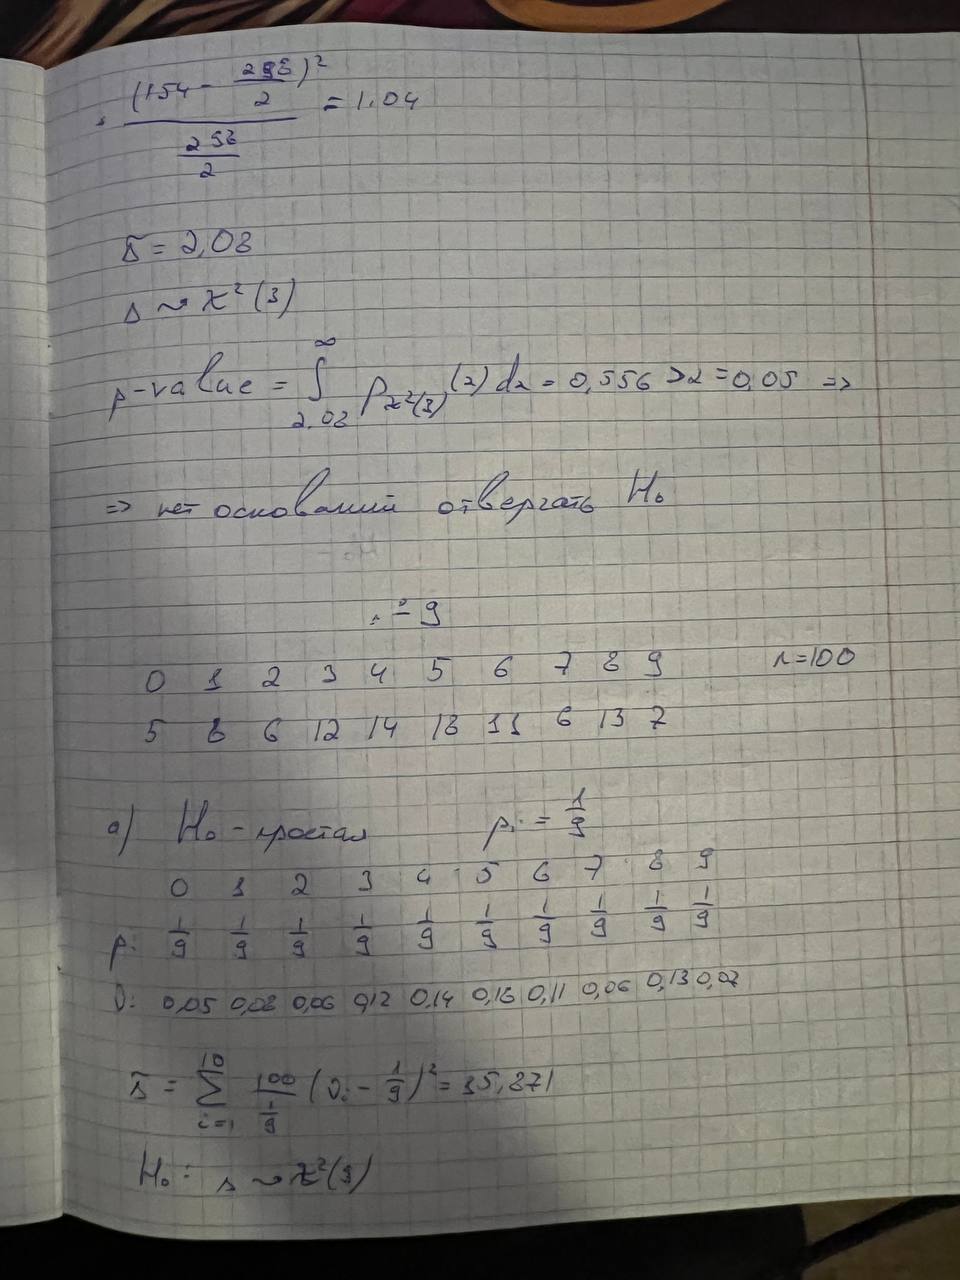 (154 - 298/2)² / (258/2) = 1.04
Δ̃ = 2,08
Δ ~ χ²(3)
p-value = ∫_{2.08}^{∞} p_{χ²(3)}(z) dz = 0,556 > α = 0,05 =>
=> нет оснований отвергать H₀
= 9
0 1 2 3 4 5 6 7 8 9 n=100
5 8 6 12 14 18 11 6 13 7
a) H₀ - простая pᵢ = 1/9
0 1 2 3 4 5 6 7 8 9
pᵢ 1/9 1/9 1/9 1/9 1/9 1/9 1/9 1/9 1/9 1/9
νᵢ 0,05 0,08 0,06 0,12 0,14 0,18 0,11 0,06 0,13 0,07
Δ̃ = Σ_{i=1}^{10} 100/(1/9) (νᵢ - 1/9)² =
H₀: Δ ~ χ²(9)